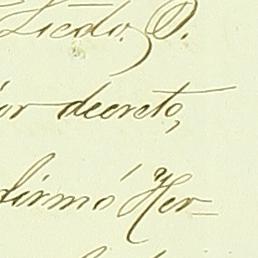 Licdo. D.
or decreto,
firmó Her-